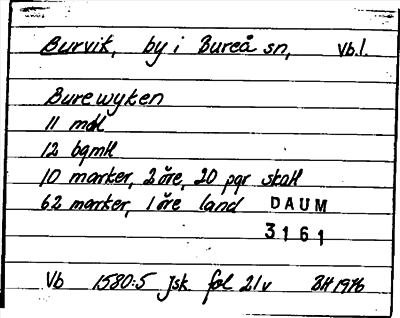 Burvik, by i Bureå sn, Vb.l.
Burewyken
11 mdl
12 bgmk
10 marker, 2 öre, 20 pgr skatt
62 marker, 1 öre land DAUM
3161
Vb 1580:5 Jsk. fol 21v BH 1976